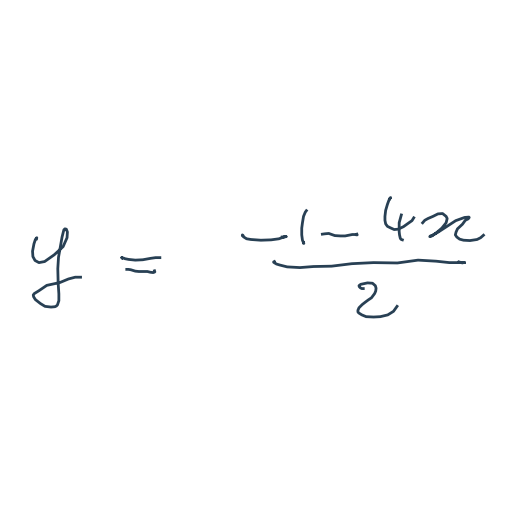 y = \frac{-1-4x}{2}